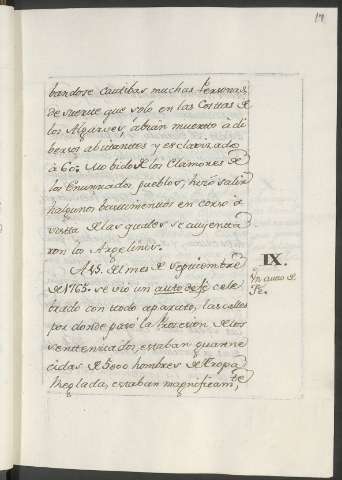 19
bandose Cautibas muchas Personas,
de suerte que solo en las Costas de
los Algarves, abrian muerto á di
bersos abitantes y esclavizado
á 60. Mobido de los Clamores de
los enunziados pueblos, hizo salir
halgunos bastimentos en corso á
vista de las quales se auyenta
ron los Argelinos.
A 25. del mes de Septiembre
de 1765. se vió un auto de fe cele
brado con todo aparato, las calles
por donde pasó la Prozesion de los
sentenziados, estaban guarne
cidas de 5000 hombres de tropa
Reglada, estaban magnificamte
IX.
Un auto de
Fe.